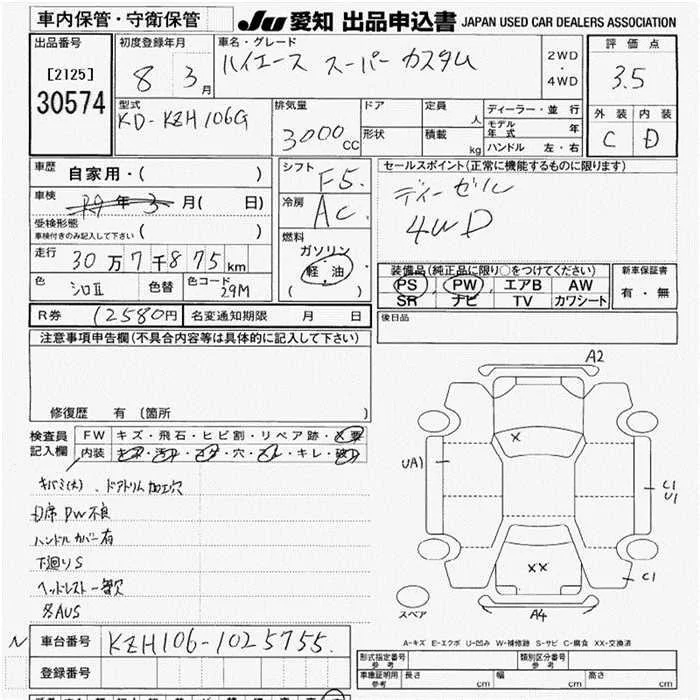 車内保管・守衛保管
JU 愛知 出品申込書 JAPAN USED CAR DEALERS ASSOCIATION
出品番号
[2125]
30574
初度登録年月
8 3月
車名・グレード
ハイエース スーパーカスタム
2WD
・
4WD
評価点
3.5
型式
KD-KZH106G
排気量
3000cc
ドア
定員
人
形状
積載
kg
ディーラー・並行
モデル年式 年
ハンドル 左・右
外装 内装
C D
車歴
自家用・( )
車検
R9年3月( 日)
受検形態
車検付きのみ記入して下さい ( )
走行
30万7千875km
色
シロII
色替
色コード
29M
シフト
F5.
冷房
AC.
燃料
ガソリン
軽油
( )
セールスポイント(正常に機能するものに限ります)
ディーゼル
4WD
装備品(純正品に限り○をつけてください)
PS PW エアB AW
SR ナビ TV カワシート
新車保証書
有・無
R券 12580円
名変通知期限 月 日
後日品
注意事項申告欄(不具合内容等は具体的に記入して下さい)
修復歴 有(箇所 )
検査員
記入欄
FW キズ・飛石・ヒビ割・リペア跡・X要
内装 キズ・汚れ・コゲ・穴・スレ・キレ・破れ
キバミ(大)、ドアトリム加工穴
D席PW不良
ハンドルカバー有
下廻りS
ヘッドレスト一部欠
名AUS
N
車台番号
KZH106-1025755.
登録番号
A2
X
UA1
C1
U1
XX
C1
スペア
A4
A-キズ E-エクボ U-凹み W-補修跡 S-サビ C-腐食 XX-交換済
形式指定番号
参考
類別区分番号
参考
車庫証明用
参考
長さ cm 幅 cm 高さ cm